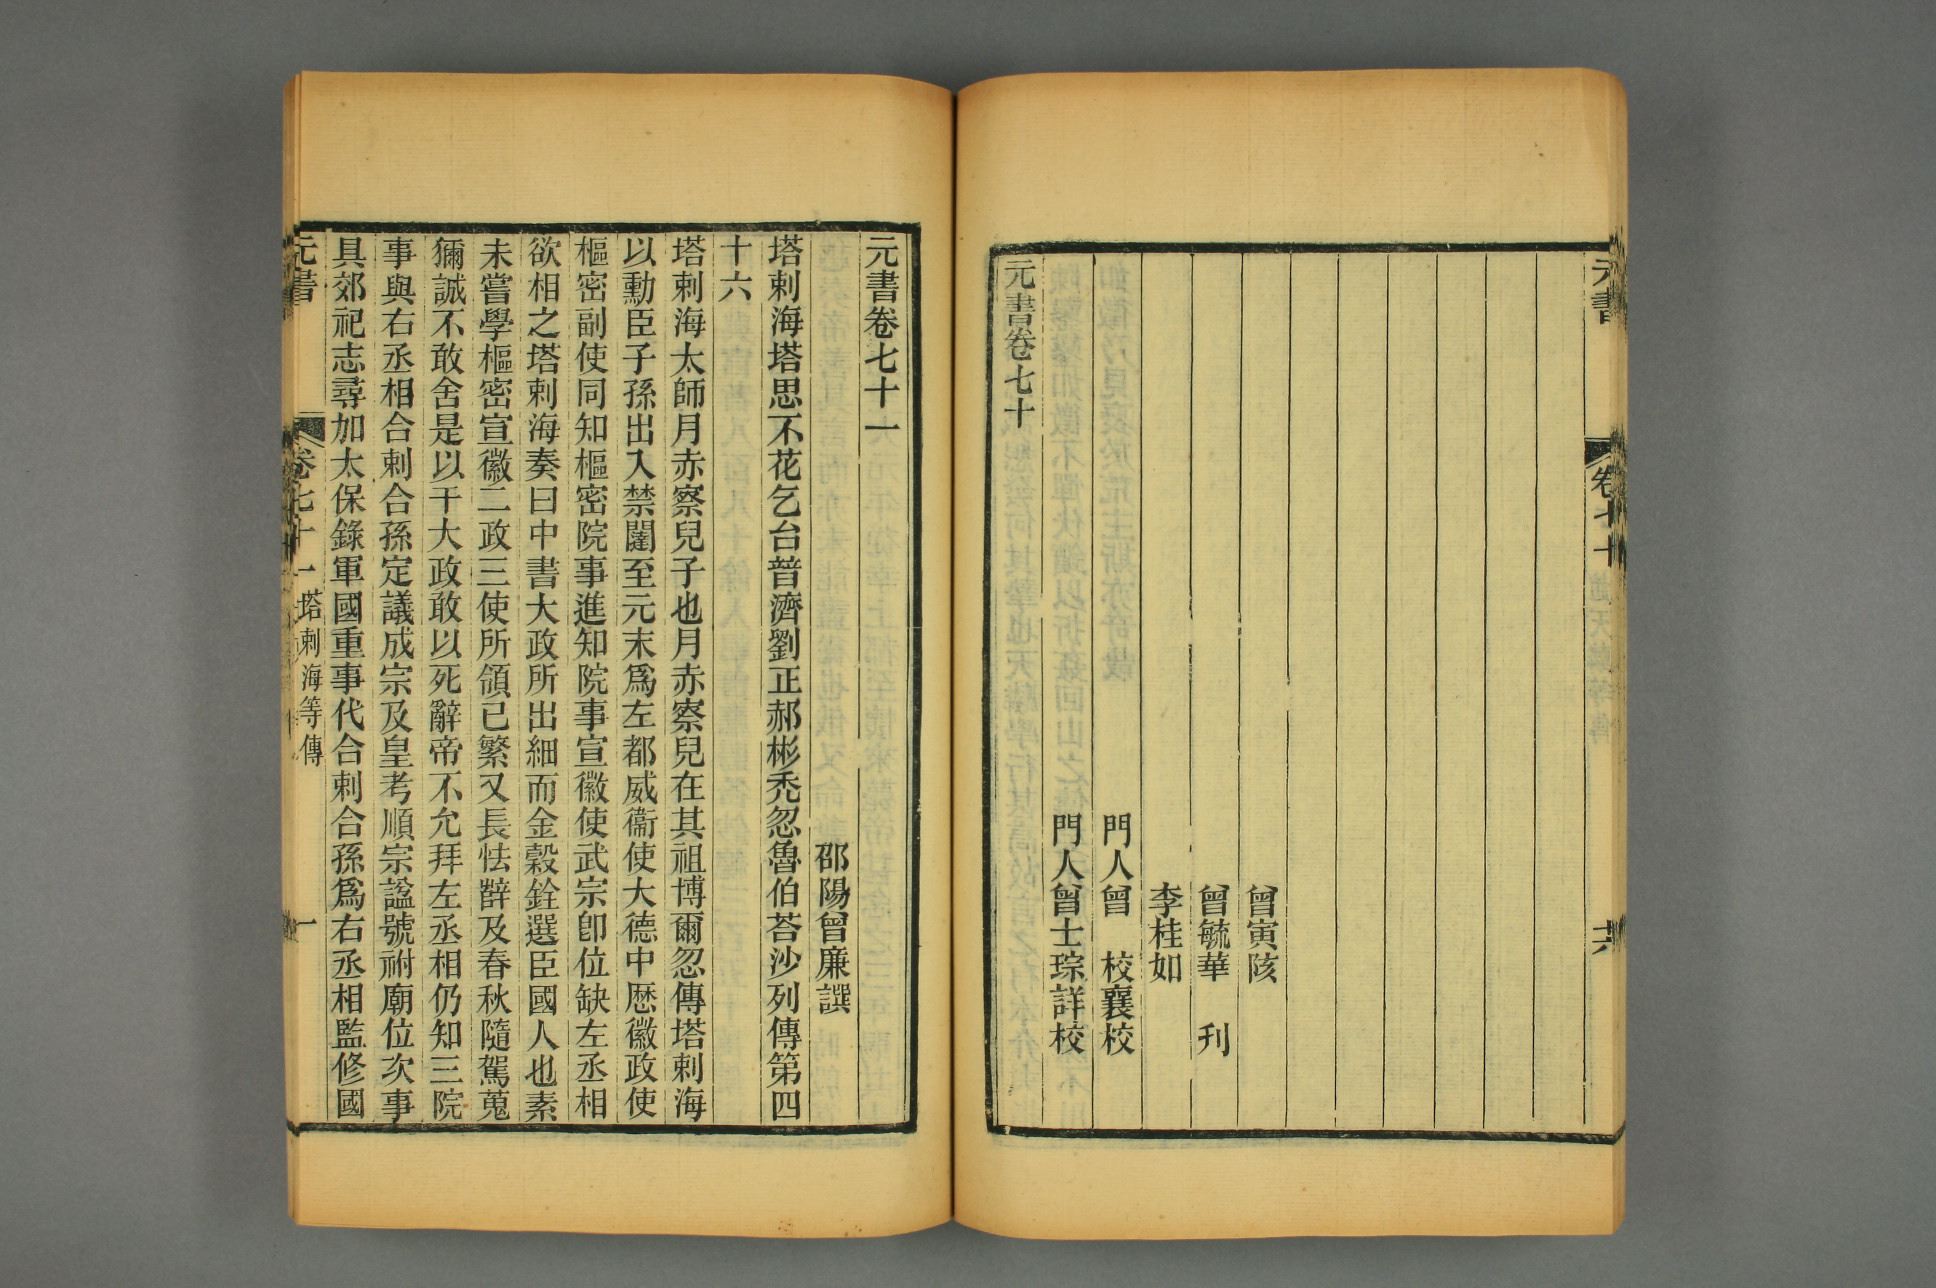 元書
卷七十
十六
曾寅陔
曾毓華 刊
李桂如
門人曾 校襄校
門人曾士琮詳校
元書卷七十
元書卷七十一
邵陽曾廉譔
塔剌海塔思不花乞台普濟劉正郝彬禿忽魯伯荅沙列傳第四
十六
塔剌海太師月赤察兒子也月赤察兒在其祖博爾忽傳塔剌海
以勳臣子孫出入禁闥至元末爲左都威衞使大德中歷徽政使
樞密副使同知樞密院事進知院事宣徽使武宗卽位缺左丞相
欲相之塔剌海奏曰中書大政所出細而金穀銓選臣國人也素
未嘗學樞密宣徽二政三使所領已繁又長怯辥及春秋隨駕蒐
獮誠不敢舍是以干大政敢以死辭帝不允拜左丞相仍知三院
事與右丞相合剌合孫定議成宗及皇考順宗謚號祔廟位次事
具郊祀志尋加太保錄軍國重事代合剌合孫爲右丞相監修國
元書
卷七十一
塔剌海等傳
一